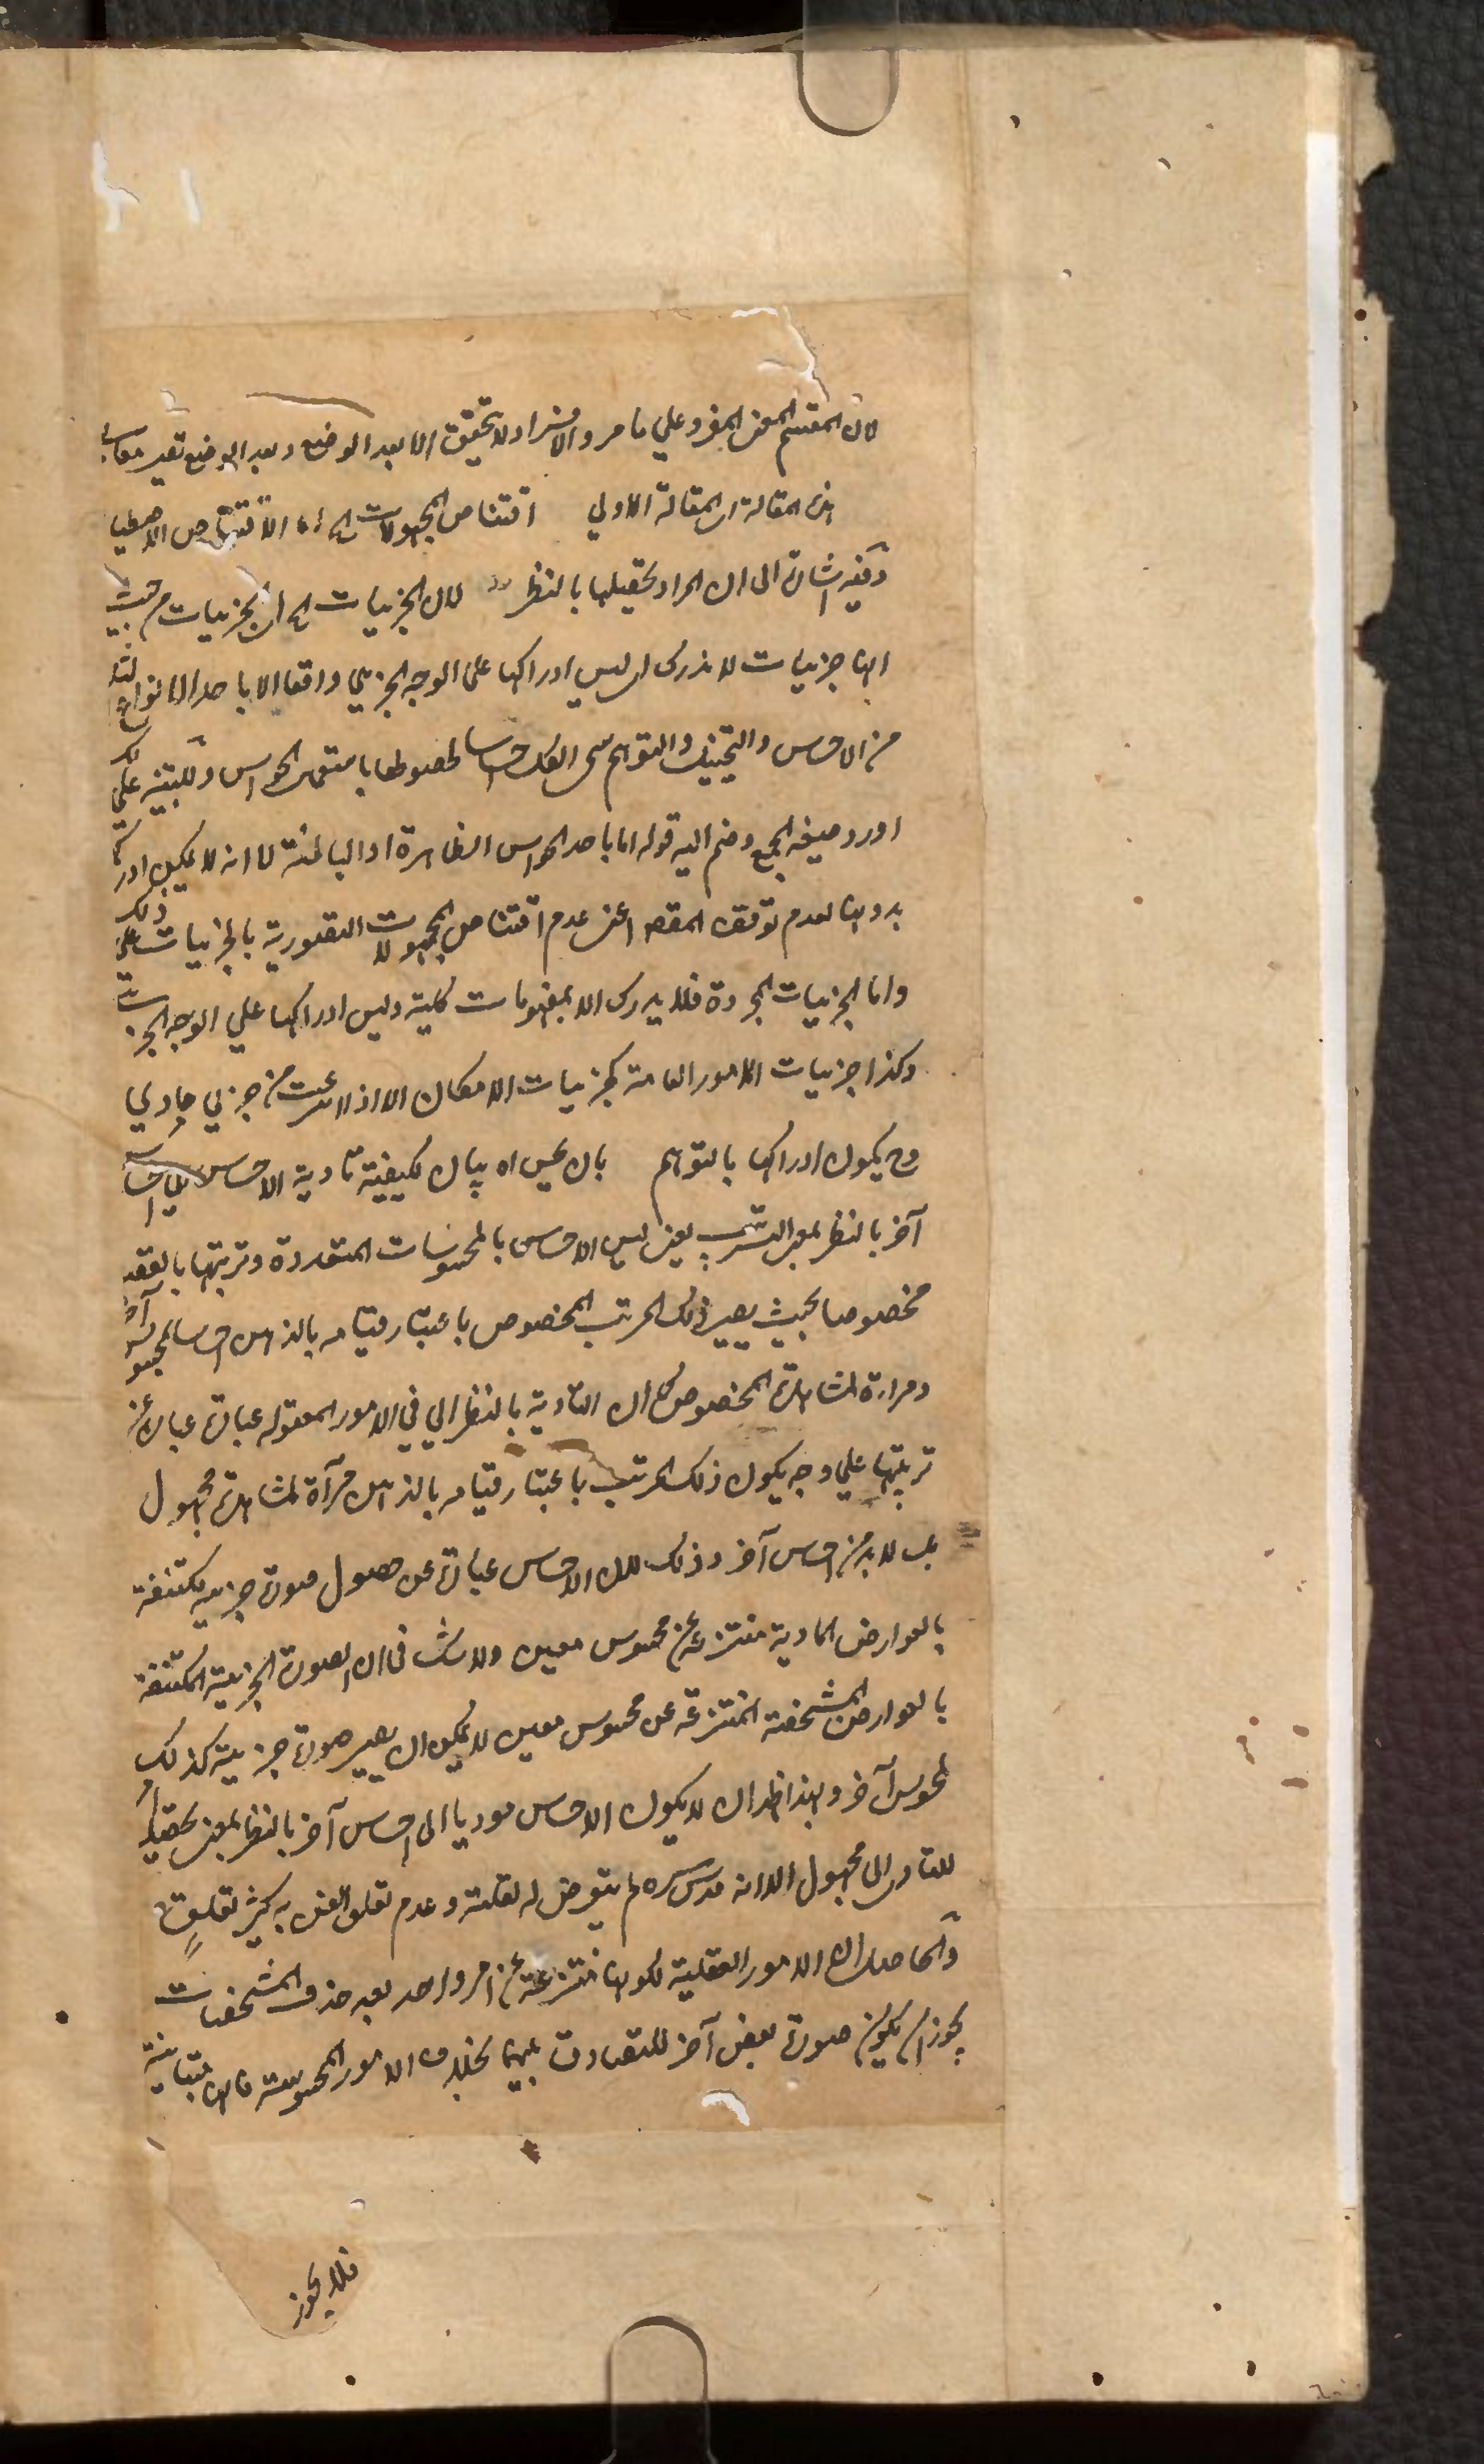 لان المقسم المعنى المفرد علي ما مر والافراد لا تحقق الا بعد الوضع وبعد الوضع تصير
هذه المقالة اى المقالة الاولي اقتناص المجهولات الخ الاقتناص الاصطياد
وفيه اشارة الى ان المراد تحصيلها بالنظر لان الجزئيات الخ اى الجزئيات من حيث
انها جزئيات لا تدرك اى ليس ادراكها على الوجه الجزئي واقعا الا باحد الانواع الثلثة
من الاحساس والتخييل والتوهم سمى الكل احساسا لحصولها باستعمال الحواس وللتنبيه على ذلك
اورد صيغة الجمع وضم اليه قوله اما باحد الحواس الظاهرة او الباطنة لا انه لا يمكن ادراكها
بدونها لعدم توقف المقصود اعنى عدم اقتناص المجهولات التصورية بالجزئيات على ذلك
واما الجزئيات المجردة فلا يدرك الا بمفهومات كلية وليس ادراكها علي الوجه الجزئي
وكذا جزئيات الامور العامة كجزئيات الامكان الا اذا انتزعت من جزئي مادي
وح يكون ادراكها بالتوهم بان يحس اه بيان لكيفية تأدية الاحساس الى احساس
آخر بالنظر بمعنى الترتيب يعنى ليس الاحساس بالمحسوسات المتعددة وترتيبها بالقصد
مخصوصا بحيث يصير ذلك المرتب المخصوص باعتبار قيامه بالذهن احساسا لمحسوس آخر
ومرآة لمشاهدة المخصوص كما ان التأدية بالنظر الي في الامور المعقوله عبارة عبارة عن
ترتيبها على وجه يكون ذلك المرتب باعتبار قيامه بالذهن مرآة لمشاهدة مجهول
بل لابد من احساس آخر وذلك لان الاحساس عبارة عن حصول صورة جزئية مكتنفة
بالعوارض المادية منتزعة عن محسوس معين ولا شك فى ان الصورة الجزئية المكتنفة
بالعوارض المشخصة المنتزعة عن محسوس معين لا يمكن ان يصير صورة جزئية كذلك
لمحسوس آخر وبهذا ظهر ان لا يكون الاحساس موديا الى احساس آخر بالنظر بمعنى تحصيل
للتأدى الى مجهول الا انه قدس سره لم يتعرض له لقلته وعدم تعلق الغرض به كثير تعلق
والحاصل ان الامور العقلية لكونها منتزعة عن امر واحد بعد حذف المشخصات
يجوز ان يكون صورة بعض آخر للتصادق بينها بخلاف الامور المحسوسة فانها متباينة
فلا يجوز